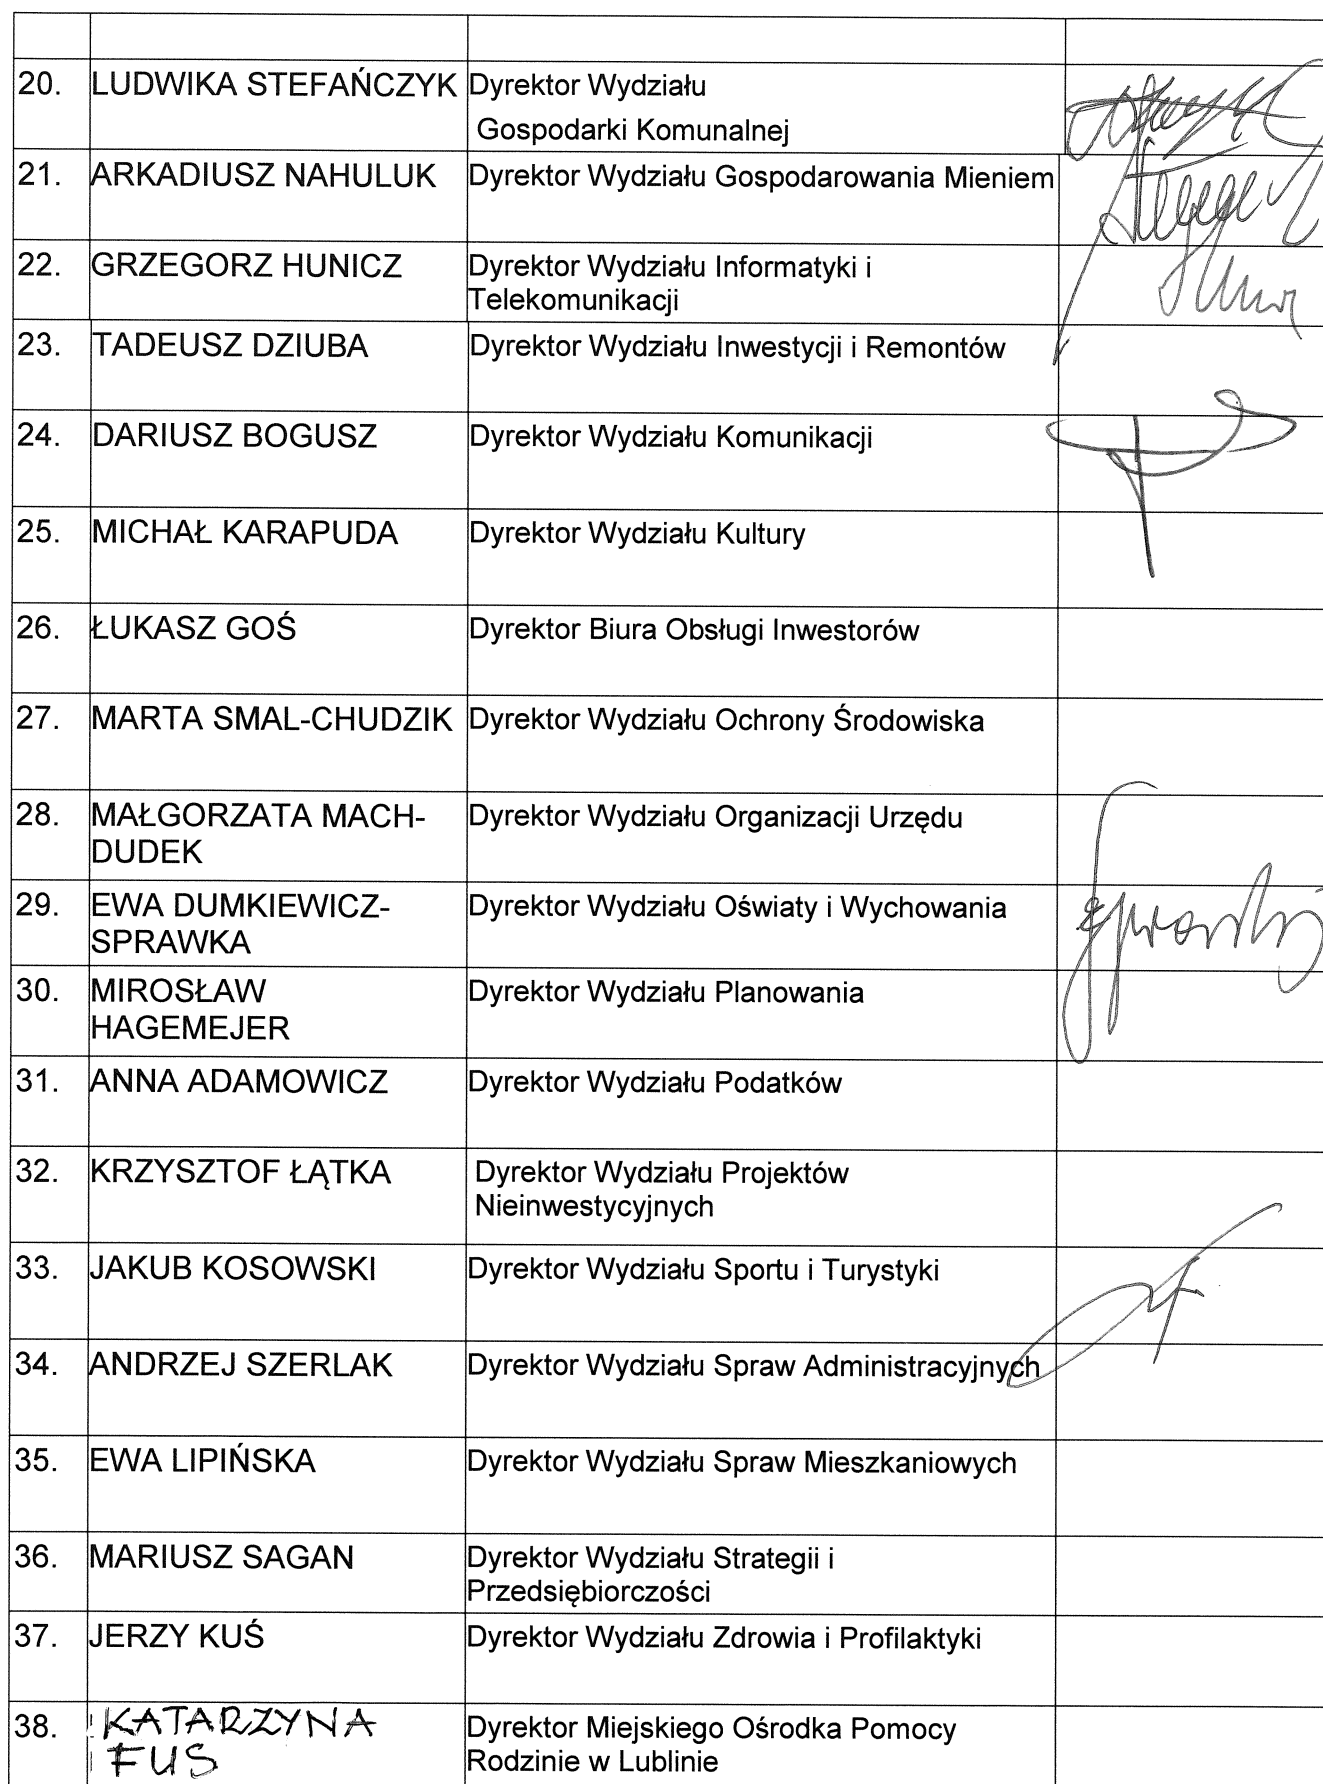 20. LUDWIKA STEFAŃCZYK Dyrektor Wydziału
Gospodarki Komunalnej
21. ARKADIUSZ NAHULUK Dyrektor Wydziału Gospodarowania Mieniem
22. GRZEGORZ HUNICZ Dyrektor Wydziału Informatyki i
Telekomunikacji
23. TADEUSZ DZIUBA Dyrektor Wydziału Inwestycji i Remontów
24. DARIUSZ BOGUSZ Dyrektor Wydziału Komunikacji
25. MICHAŁ KARAPUDA Dyrektor Wydziału Kultury
26. ŁUKASZ GOŚ Dyrektor Biura Obsługi Inwestorów
27. MARTA SMAL-CHUDZIK Dyrektor Wydziału Ochrony Środowiska
28. MAŁGORZATA MACH- Dyrektor Wydziału Organizacji Urzędu
DUDEK
29. EWA DUMKIEWICZ- Dyrektor Wydziału Oświaty i Wychowania
SPRAWKA
30. MIROSŁAW Dyrektor Wydziału Planowania
HAGEMEJER
31. ANNA ADAMOWICZ Dyrektor Wydziału Podatków
32. KRZYSZTOF ŁĄTKA Dyrektor Wydziału Projektów
Nieinwestycyjnych
33. JAKUB KOSOWSKI Dyrektor Wydziału Sportu i Turystyki
34. ANDRZEJ SZERLAK Dyrektor Wydziału Spraw Administracyjnych
35. EWA LIPIŃSKA Dyrektor Wydziału Spraw Mieszkaniowych
36. MARIUSZ SAGAN Dyrektor Wydziału Strategii i
Przedsiębiorczości
37. JERZY KUŚ Dyrektor Wydziału Zdrowia i Profilaktyki
38. KATARZYNA Dyrektor Miejskiego Ośrodka Pomocy
FUS Rodzinie w Lublinie